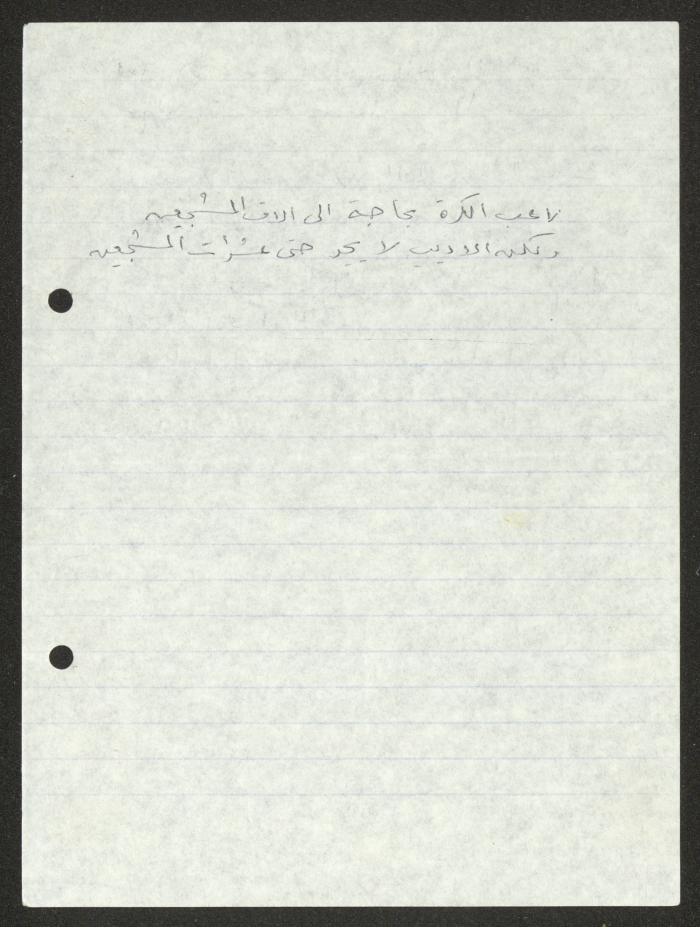 لاعب الكرة بحاجة الى الاف المشجعين
ولكن الاديب لا يجد حتى عشرات المشجعين